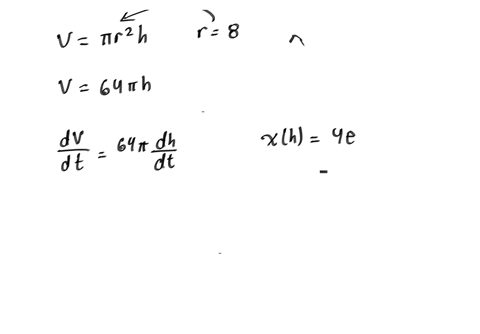 V = πr²h r = 8
V = 64πh
dV/dt = 64π dh/dt x(h) = 4e